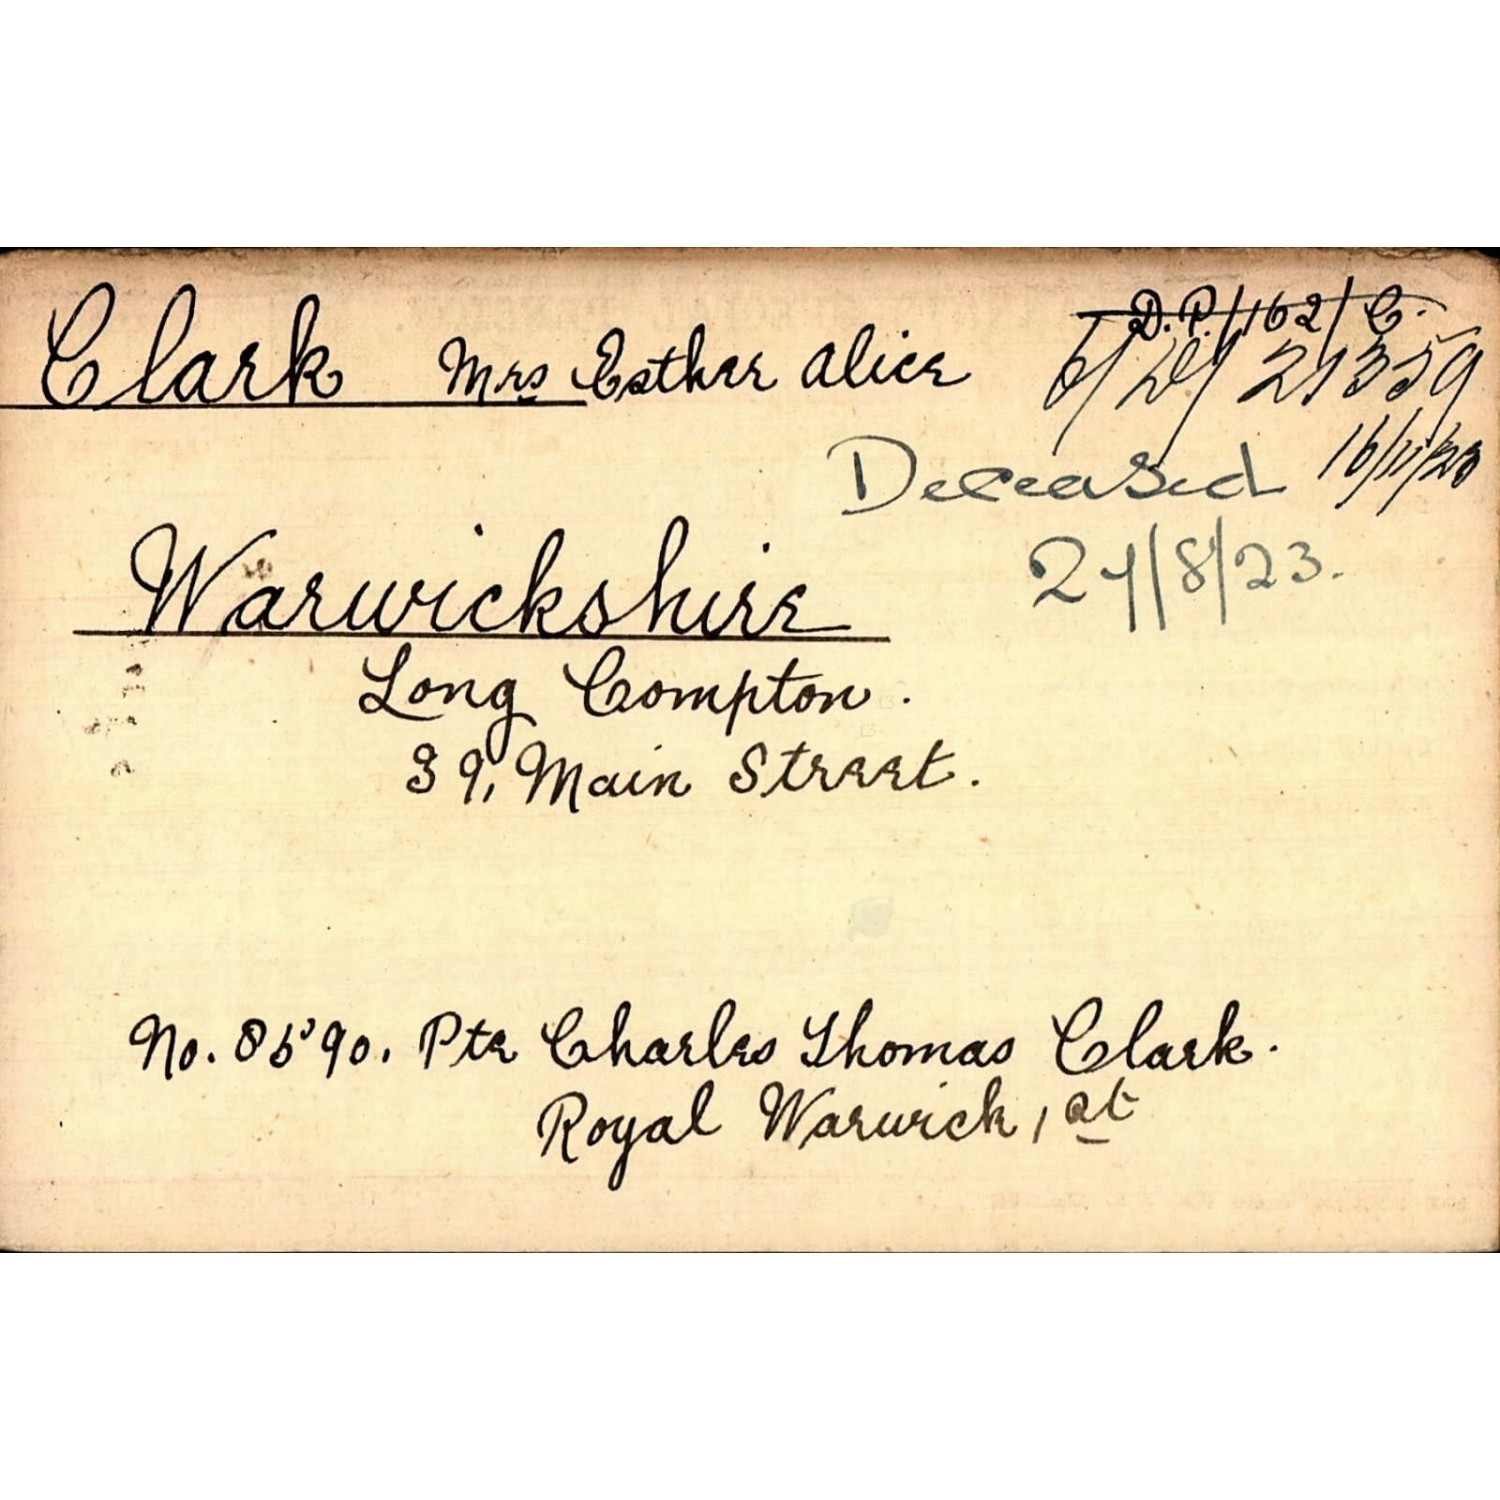 Clark Mrs Esther Alice
D.P./162/C.
6/D/21359
16/11/23
Deceased
27/8/23.
Warwickshire
Long Compton.
39, Main Street.
No. 8590. Pte Charles Thomas Clark.
Royal Warwick, at